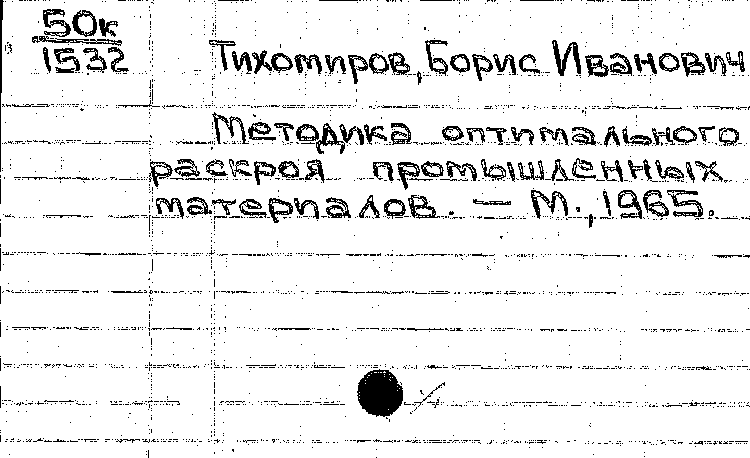 50к
1532
Тихомиров, Борис Иванович
Методика оптимального
раскроя промышленных
материалов. — М., 1965.